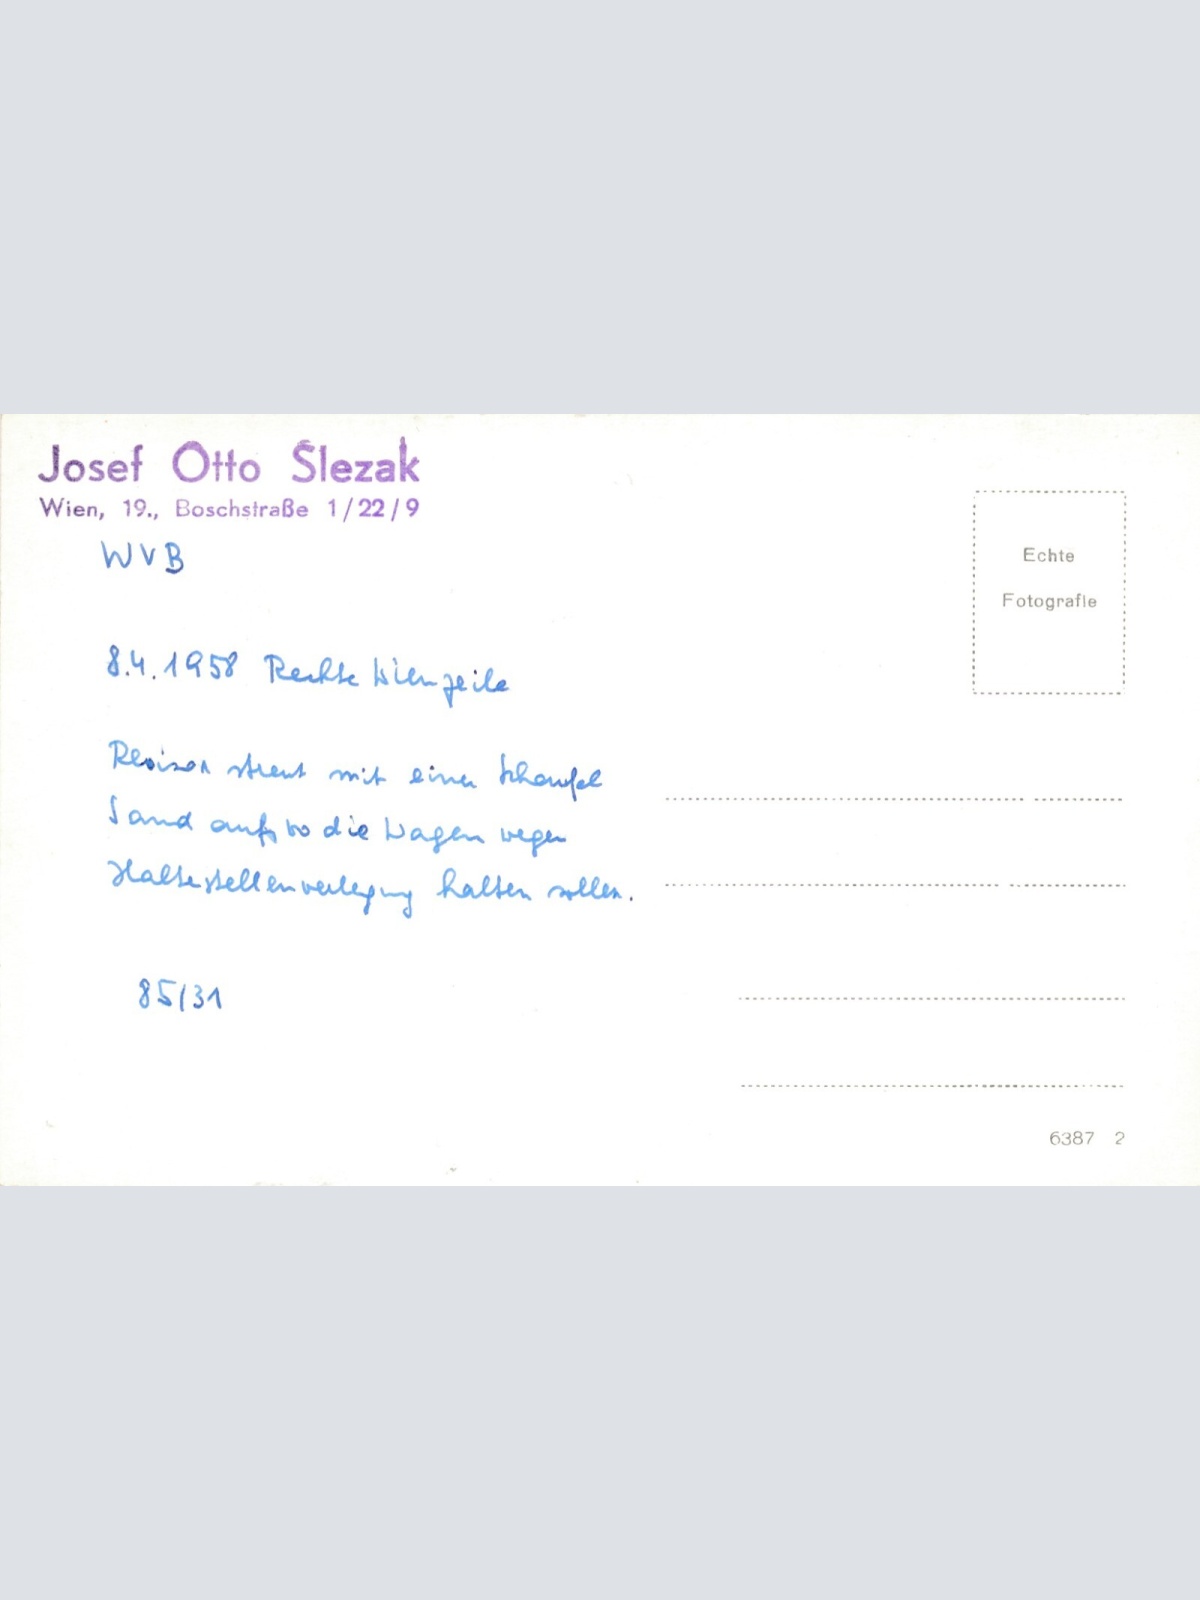 Josef Otto Slezak
Wien, 19., Boschstraße 1/22/9
WVB
Echte
Fotografie
8.4.1958 Rechte Wienzeile
Revisor streut mit einer Schaufel
Sand auf, wo die Wagen wegen
Haltestellenverlegung halten sollen.
85/31
6387 2